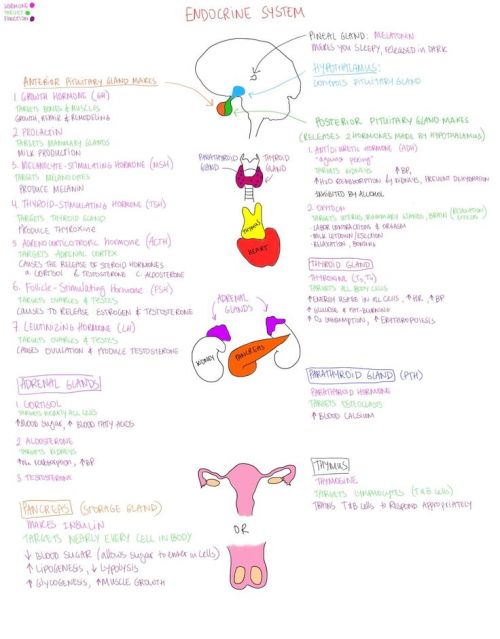 HORMONE
TARGET
FUNCTION
ENDOCRINE SYSTEM
PINEAL GLAND: MELATONIN
MAKES YOU SLEEPY, RELEASED IN DARK
HYPOTHALAMUS:
CONTROLS PITUITARY GLAND
ANTERIOR PITUITARY GLAND MAKES
1. GROWTH HORMONE (GH)
TARGETS BONES & MUSCLES
GROWTH, REPAIR & REMODELING
2. PROLACTIN
TARGETS MAMMARY GLANDS
MILK PRODUCTION
3. MELANOCYTE-STIMULATING HORMONE (MSH)
TARGETS MELANOCYTES
PRODUCE MELANIN
4. THYROID-STIMULATING HORMONE (TSH)
TARGETS THYROID GLAND
PRODUCE THYROXINE
5. ADRENOCORTICOTROPIC HORMONE (ACTH)
TARGETS ADRENAL CORTEX
CAUSES THE RELEASE OF STEROID HORMONES
A. CORTISOL B. TESTOSTERONE C. ALDOSTERONE
6. Follicle-Stimulating Hormone (FSH)
TARGETS OVARIES & TESTES
CAUSES TO RELEASE ESTROGEN & TESTOSTERONE
7. LEUTINIZING HORMONE (LH)
TARGETS OVARIES & TESTES
CAUSES OVULATION & PRODUCE TESTOSTERONE
POSTERIOR PITUITARY GLAND MAKES
(RELEASES 2 HORMONES MADE BY HYPOTHALAMUS)
1. ANTIDIURETIC HORMONE (ADH)
"against peeing"
TARGETS KIDNEYS ↑BP,
↑H₂O REABSORPTION by KIDNEYS, PREVENT DEHYDRATION
INHIBITED BY ALCOHOL
2. OXYTOCIN
TARGETS UTERUS, MAMMARY GLANDS, BRAIN
- LABOR CONTRACTIONS & ORGASM
- MILK LETDOWN / EJECTION
- RELAXATION, BONDING
PARATHYROID GLAND
THYROID GLAND
THYMUS
HEART
THYROID GLAND
THYROXINE (T₃, T₄)
TARGETS ALL BODY CELLS
↑ENERGY USAGE IN ALL CELLS, ↑HR, ↑BP
↑GLUCOSE & FAT-BURNING
↑O₂ CONSUMPTION, ↑ERYTHROPOIESIS
ADRENAL GLANDS
KIDNEY
PANCREAS
PARATHYROID GLAND (PTH)
PARATHYROID HORMONE
TARGETS OSTEOCLASTS
↑BLOOD CALCIUM
ADRENAL GLANDS
1. CORTISOL
TARGETS NEARLY ALL CELLS
↑BLOOD SUGAR, ↑BLOOD FATTY ACIDS
2. ALDOSTERONE
TARGETS KIDNEYS
REABSORPTION, ↑BP
3. TESTOSTERONE
THYMUS
THYMOSINE
TARGETS LYMPHOCYTES (T&B CELLS)
TRAINS T&B CELLS to RESPOND APPROPRIATELY
PANCREAS (STORAGE GLAND)
MAKES INSULIN
TARGETS NEARLY EVERY CELL IN BODY
↓ BLOOD SUGAR (allows sugar to enter in cells)
↑ LIPOGENESIS, ↓ LYPOLYSIS
↑ GLYCOGENESIS, ↑MUSCLE GROWTH
OR